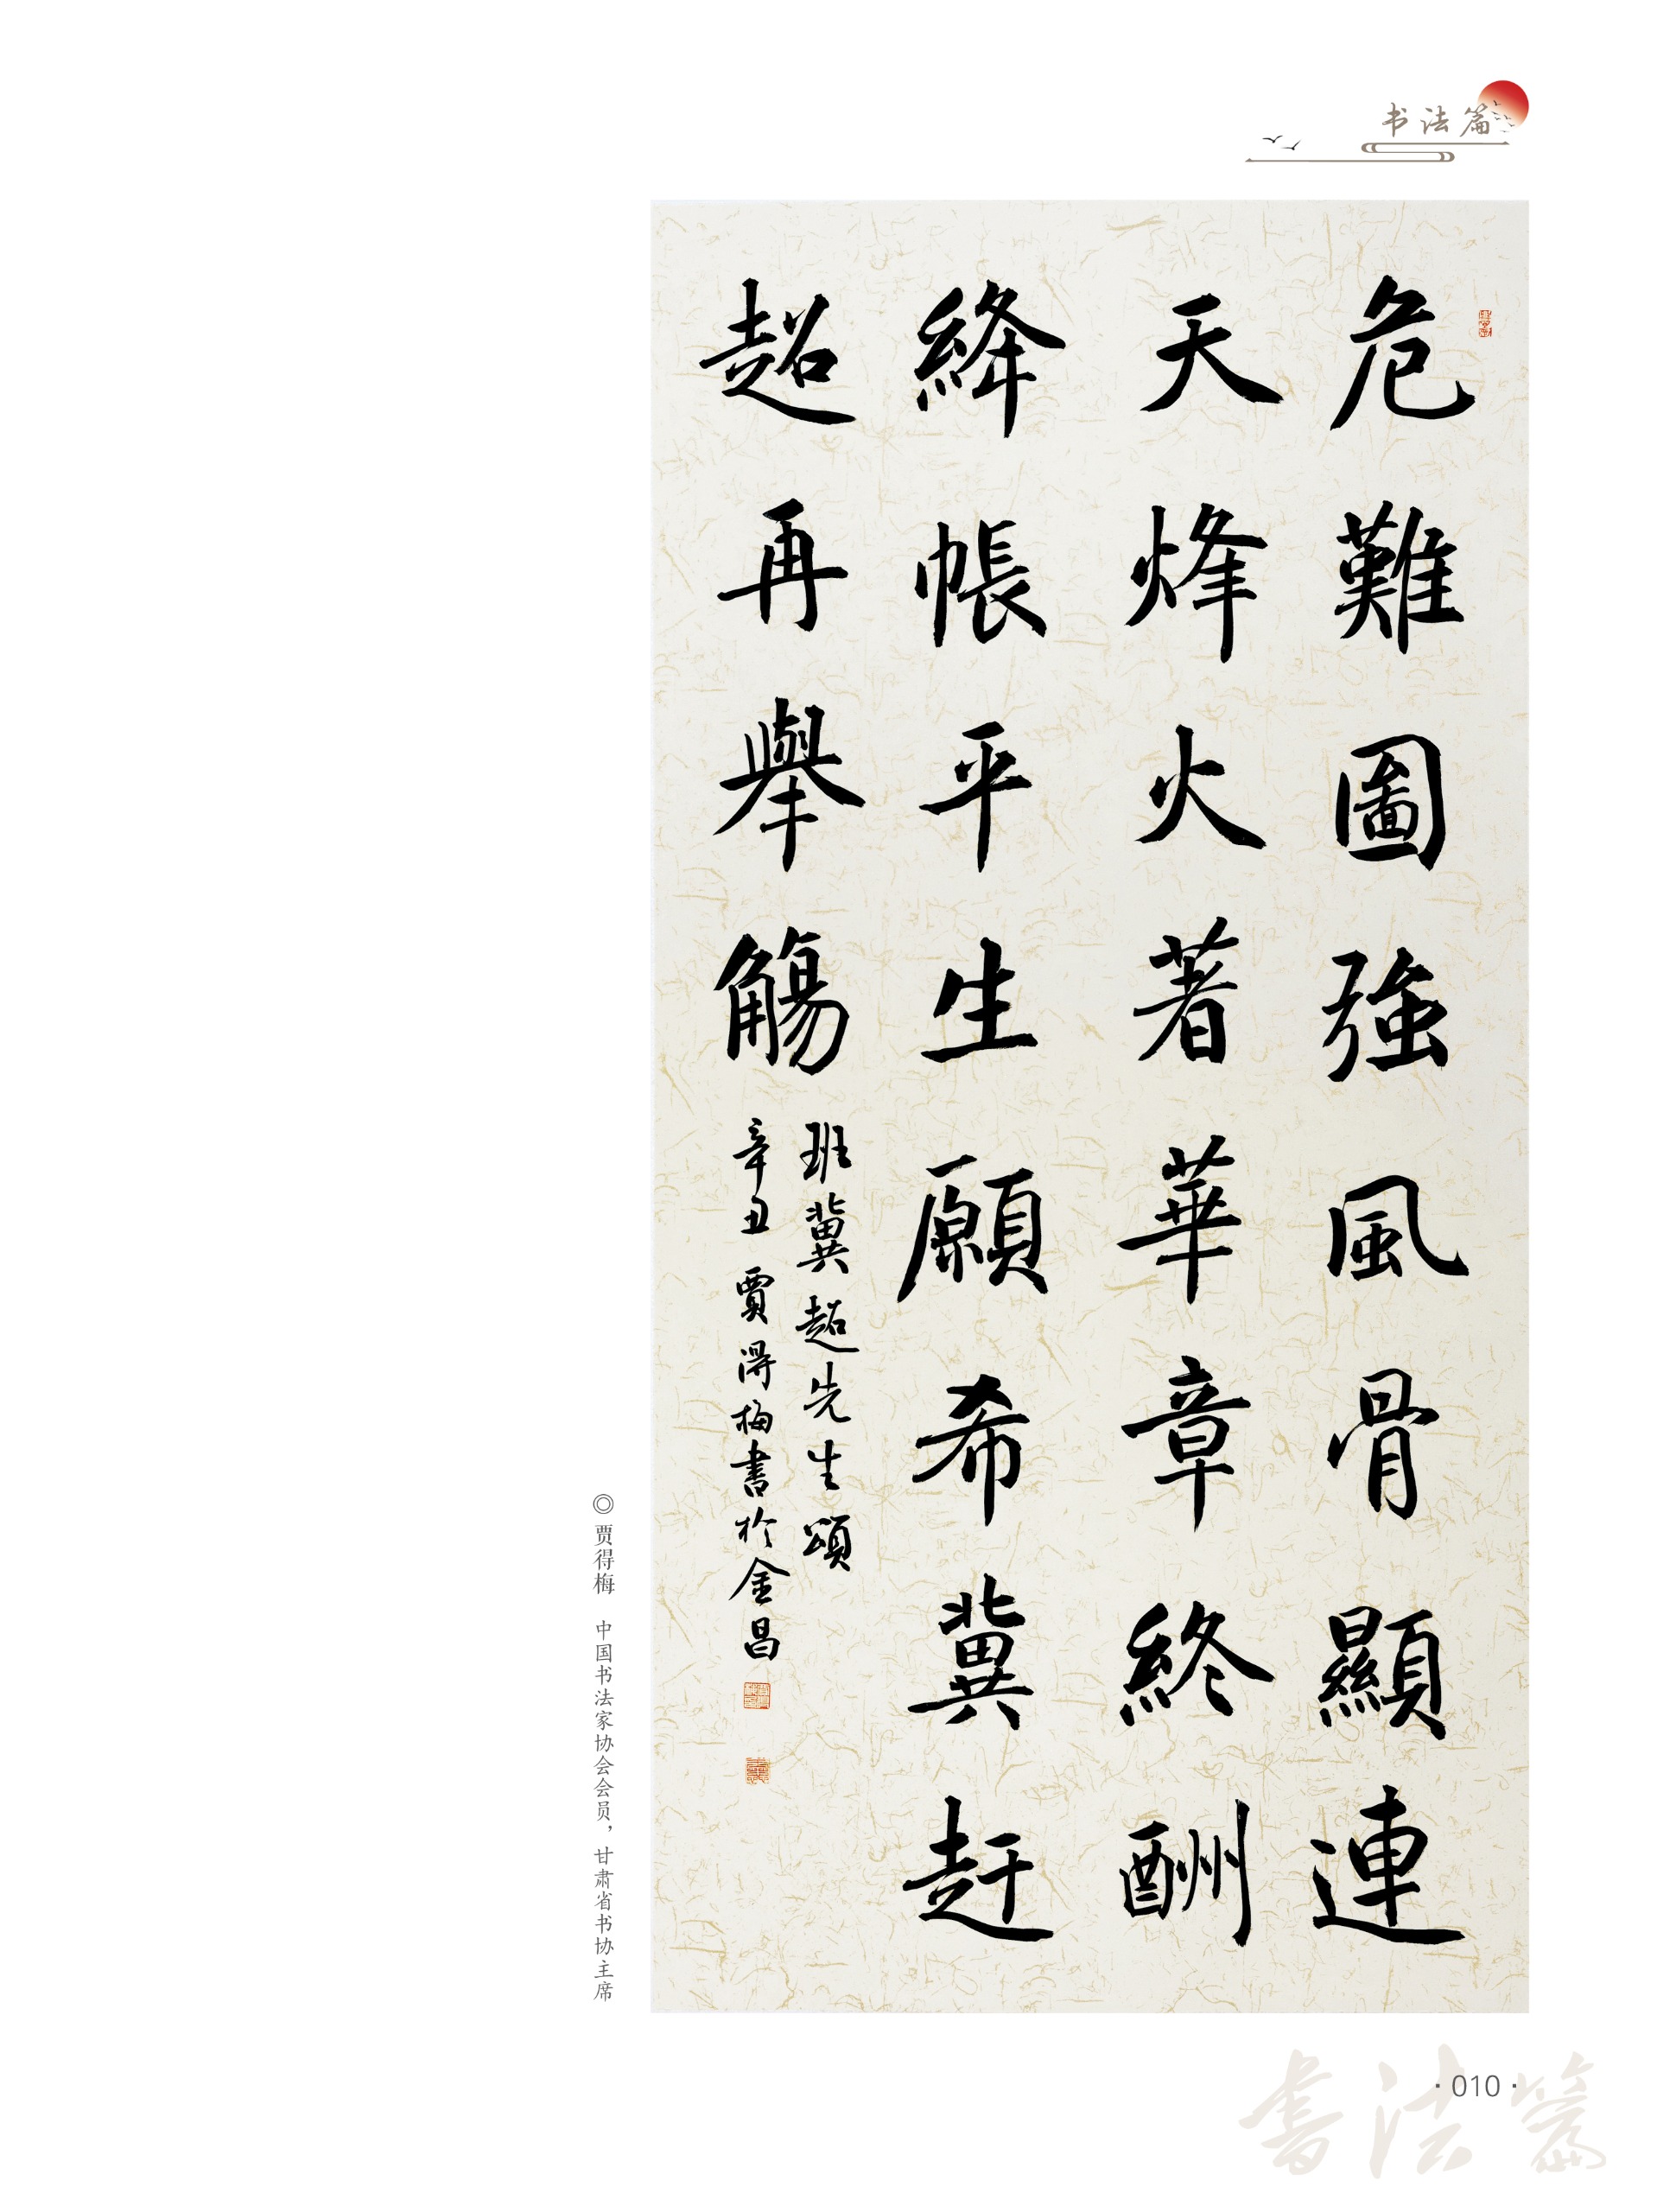 书法篇
危難圖強風骨顯連
天烽火著華章終酬
絳帳平生願希冀赶
超再舉觴
班冀超先生頌
辛丑賈得梅書於金昌
◎ 贾得梅 中国书法家协会会员，甘肃省书协主席
· 010 ·
書法篇